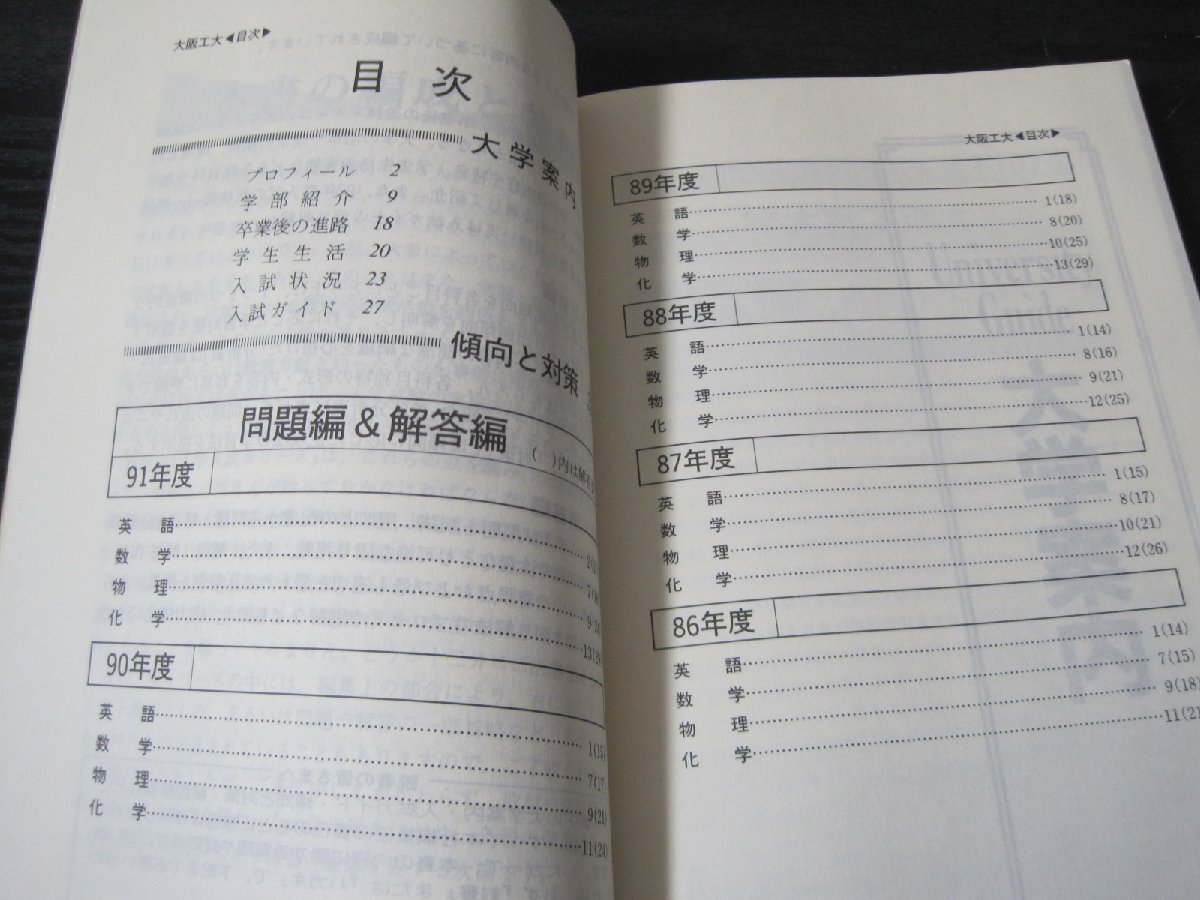 大阪工大◀目次▶
目次
大学案内
プロフィール 2
学部紹介 9
卒業後の進路 18
学生生活 20
入試状況 23
入試ガイド 27
傾向と対策
問題編&解答編
( )内は解答
91年度
英語
数学
物理
化学
90年度
英語 1(15)
数学
物理 9(21)
化学 11(24)
大阪工大◀目次▶
89年度
英語 1(18)
数学 8(20)
物理 10(25)
化学 13(29)
88年度
英語 1(14)
数学 8(16)
物理 9(21)
化学 12(25)
87年度
英語 1(15)
数学 8(17)
物理 10(21)
化学 12(26)
86年度
英語 1(14)
数学 7(15)
物理 9(18)
化学 11(21